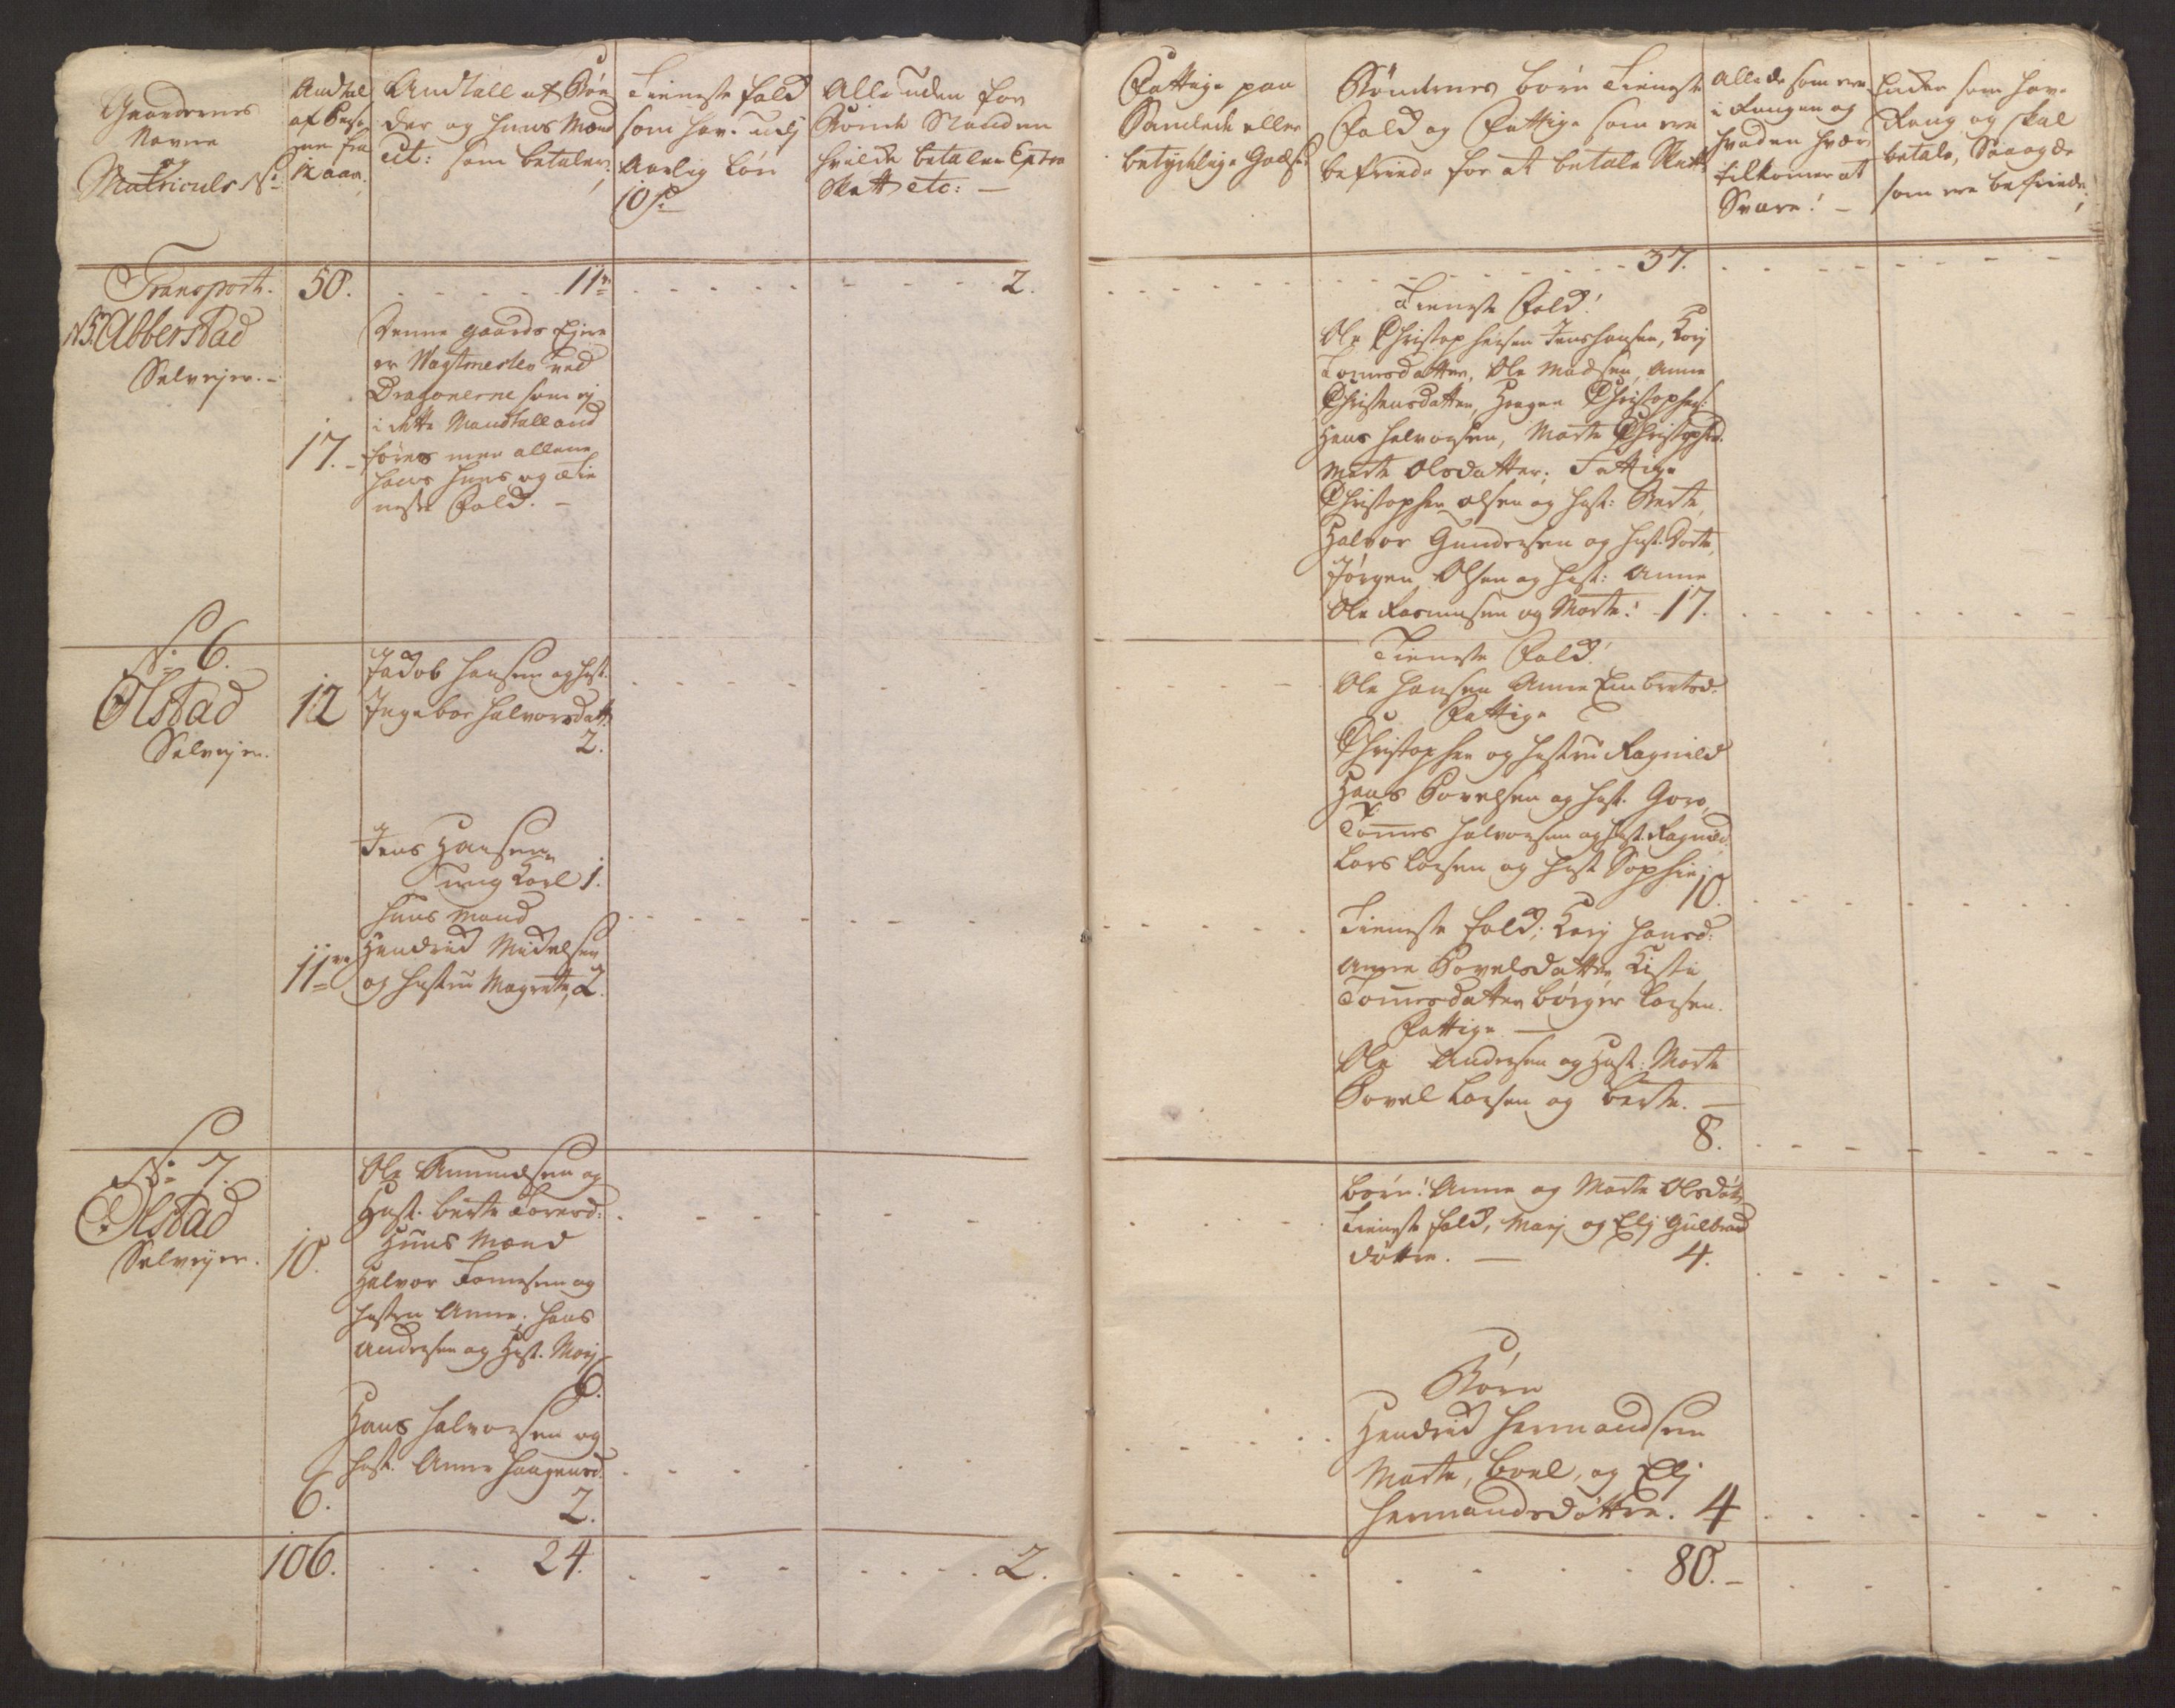 Gaardernes
Navne
og
Matriculs No
Andtal
af Perso
ner fra
12 aar.
Andtall af Bøn
der og Huus Mænd
etc: som betaler,
Tieneste folk
som har
Aarlig Løn
10 s
Alle uden for
Bonde Standen
hvilke betaler Extra
Skatt etc: —
Fattige paa
Samlede eller
betydelige Godse
Bøndernes børn Tieneste
Folk og Fattige som ere
befriede for at betale Skatt
Alle de som ere
i Rangen og
hvadan hver
tilkomer at
Svare! —
som har
Rang og skal
betale, Saa og de
som ere befriede
Transport. 50. 11 2. 37.
N5. Abberstad
Selvejer. —
17. —
Denne gaards Ejere
er Wagtmester ved
Dragonerne som ej
i dette Mandtall and
føres men allene
hans Huus og Tie
neste Folk. —
Tieneste Folk!
Ole Christophersen Jens hansen, Kari
Tomesdatter, Ole Madsen, Anne
Christensdatter, Haagen Christophers:
Hans Halvorsen, Marte Christophd.
Marte Olsdatter; Fattige
Christopher olsen og Hust: Berte,
Halvor Gundersen og Hust. Dorte,
Jørgen Olsen og Hust: Anne
Ole Rasmusen og Marte! 17.
N: 6.
Olstad
Selvejer.
12
Jacob Hansen og Hust.
Ingebor Halvorsdatt:
2.
Tieneste Folk!
Ole Hansen Anne Embretsd.
Fattige
Christopher og Hustru Ragnild
Hans Povelsen og Hust. Goro,
Tomes Halvorsen og Hust. Ragnild,
Lars Larsen og Hust Sophie
10.
Jens Hansen
ung Karl 1.
Huus Mand
11
Hendrich Michelsen
og Hustru Magrete, 2.
Tieneste folk; Kari Hansd:
Anne Povelsdatter Kisti
Tomesdatter Børger Larsen.
Fattige —
Ole Andersen og Hust: Marte
Povel Larsen og Berte. —
8.
N: 7.
Olstad
Selvejer.
10.
Ole Amundsen og
Hust. Berte Toresd:
Huus Mænd
Halvor Tomesen og
Hustru Anne; Hans
Andersen og Hust. Mari
6.
Børn! Anne og Marte Olsdøt
Tieneste folk, Mari og Eli Gulbrand
døttre. — 4.
Hans Halvorsen og
Hust. Anne Haagensd.
6. 2.
Børn
Hendrich Hermandsen
Marte, Boel, og Eli
Hermandsdøttre. 4
106. 24. 2. 80. —